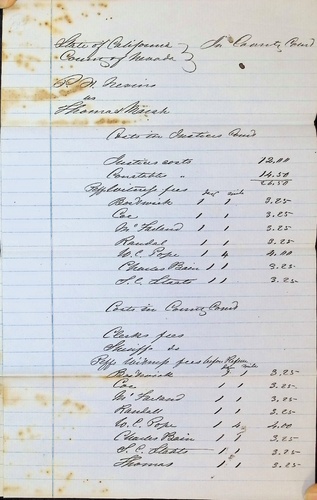 State of California } In County Court
County of Nevada }
vs
Thomas
Costs in Justices Court
Justices costs 12.00
Constable " 14.50
26.50
Plffs Witness fees day mile
Bostwick 1 1 3.25
Coe 1 1 3.25
McFarland 1 1 3.25
Randal 1 1 3.25
W. C. Pope 1 4 4.00
Charles Bain 1 1 3.25
S. C. Slaats 1 1 3.25
Costs in County Court
Clerks fees
Sheriffs do
Plffs Witness fees before
day mile
Bostwick 1 3.25
Coe 1 1 3.25
McFarland 1 1 3.25
Randall 1 1 3.25
W. C. Pope 1 4 4.00
Charles Bain 1 1 3.25
S. C. Slaats 1 1 3.25
Thomas 1 1 3.25